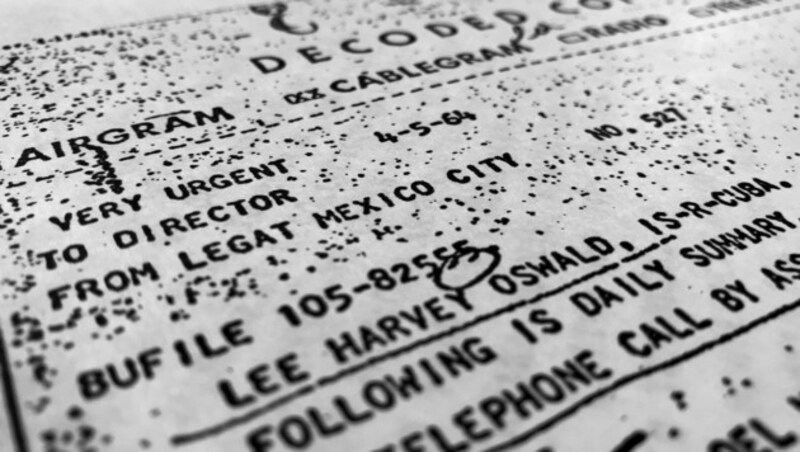 DECODED CO
AIRGRAM XX CABLEGRAM RADIO
VERY URGENT 4-5-64 NO. 527
TO DIRECTOR
FROM LEGAT MEXICO CITY
BUFILE 105-82555
LEE HARVEY OSWALD, IS-R-CUBA.
FOLLOWING IS DAILY SUMMARY.
TELEPHONE CALL BY ASS